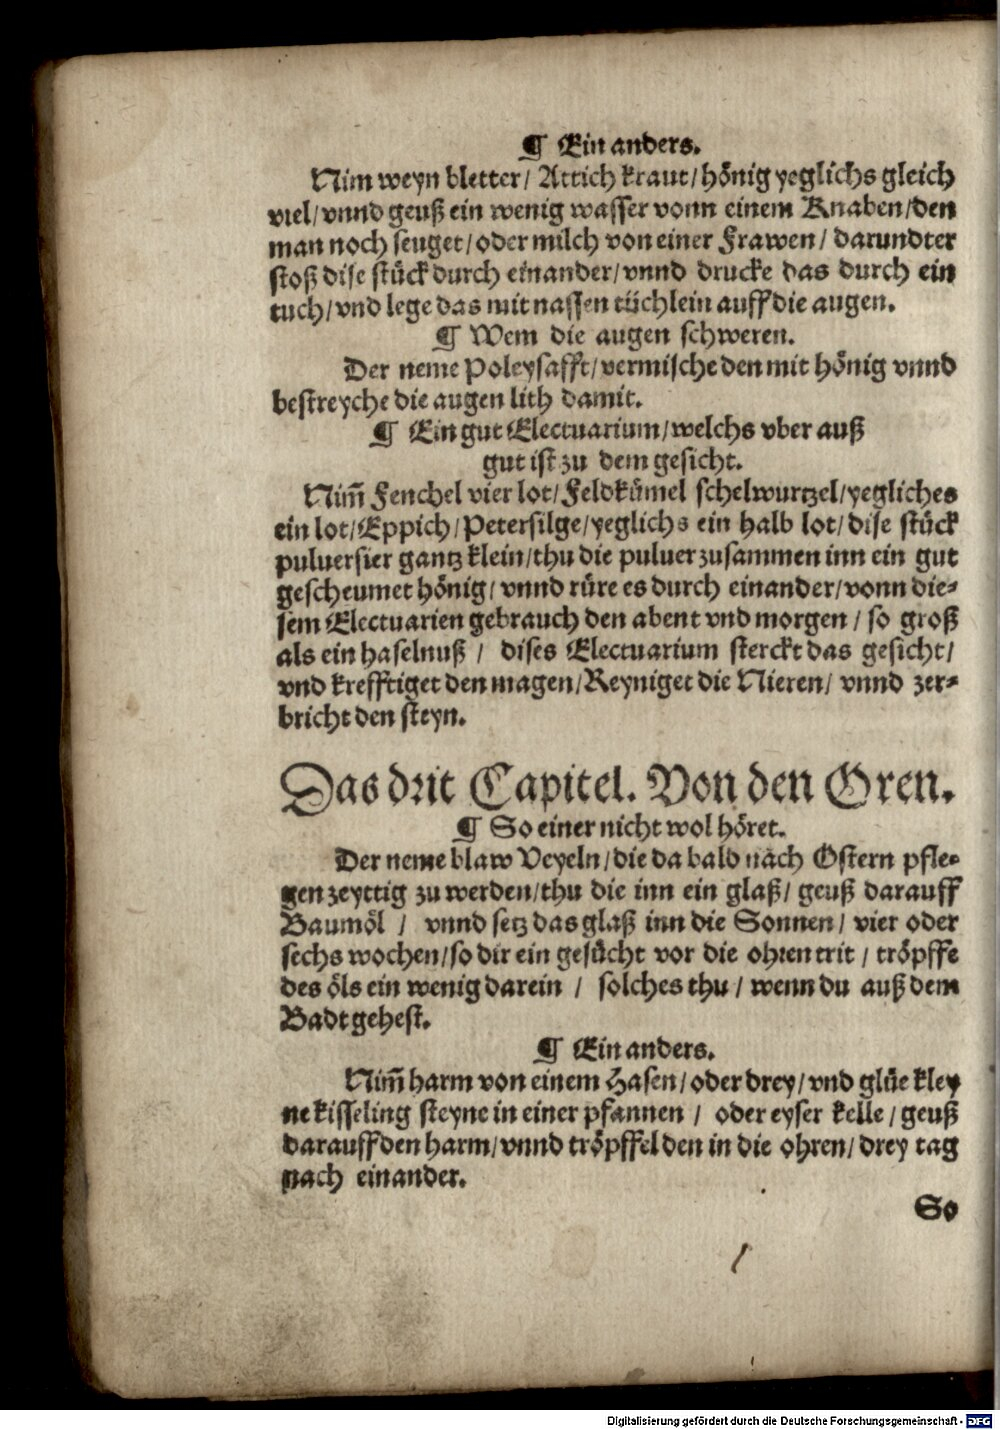 ¶ Ein anders.
Nim weyn bletter/ Attich kraut/ hönig yeglichs gleich
viel/ vnnd geuß ein wenig wasser vonn einem Knaben/ den
man noch seuget/ oder milch von einer Frawen/ darundter
stoß dise stück durch einander/ vnnd drucke das durch ein
tuch/ vnd lege das mit nassen tüchlein auff die augen.
¶ Wem die augen schweren.
Der neme Poleysafft/ vermische den mit hönig vnnd
bestreyche die augen lith damit.
¶ Ein gut Electuarium/ welchs vber auß
gut ist zu dem gesicht.
Nim̄ Fenchel vier lot/ Feldkümel schelwurtzel/ yegliches
ein lot/ Eppich/ Petersilge/ yeglichs ein halb lot/ dise stück
puluersier gantz klein/ thu die puluer zusammen inn ein gut
gescheumet hönig/ vnnd rüre es durch einander/ vonn die⸗
sem Electuarien gebrauch den abent vnd morgen / so groß
als ein haselnuß / dises Electuarium sterckt das gesicht/
vnd krefftiget den magen/ Reyniget die Nieren/ vnnd zer⸗
bricht den steyn.
Das drit Capitel. Von den Oren.
¶ So einer nicht wol höret.
Der neme blaw Veyeln/ die da bald nach Ostern pfle⸗
gen zeyttig zu werden/ thu die inn ein glaß/ geuß darauff
Baumöl / vnnd setz das glaß inn die Sonnen/ vier oder
sechs wochen/ so dir ein gesücht vor die ohren trit / tröpffe
des öls ein wenig darein / solches thu / wenn du auß dem
Badt gehest.
¶ Ein anders.
Nim̄ harm von einem Hasen/ oder drey/ vnd glüe kley
ne kisseling steyne in einer pfannen / oder eyser kelle / geuß
darauff den harm/ vnnd tröpffel den in die ohren/ drey tag
nach einander.
So
Digitalisierung gefördert durch die Deutsche Forschungsgemeinschaft - DFG